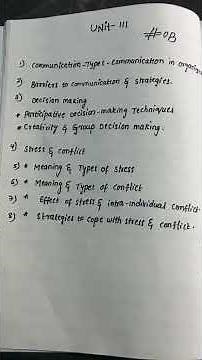 UNIT-III
#OB
1) Communication-Types-Communication in
2) Barriers to communication & strategies.
3) Decision making
* Participative Decision-making Techniques
* Creativity & Group Decision making.
4) Stress & conflict
5) * Meaning & Types of stress
6) * Meaning & Types of conflict
7) * Effect of stress & intra-individual conflict
8) * Strategies to cope with stress & conflict.